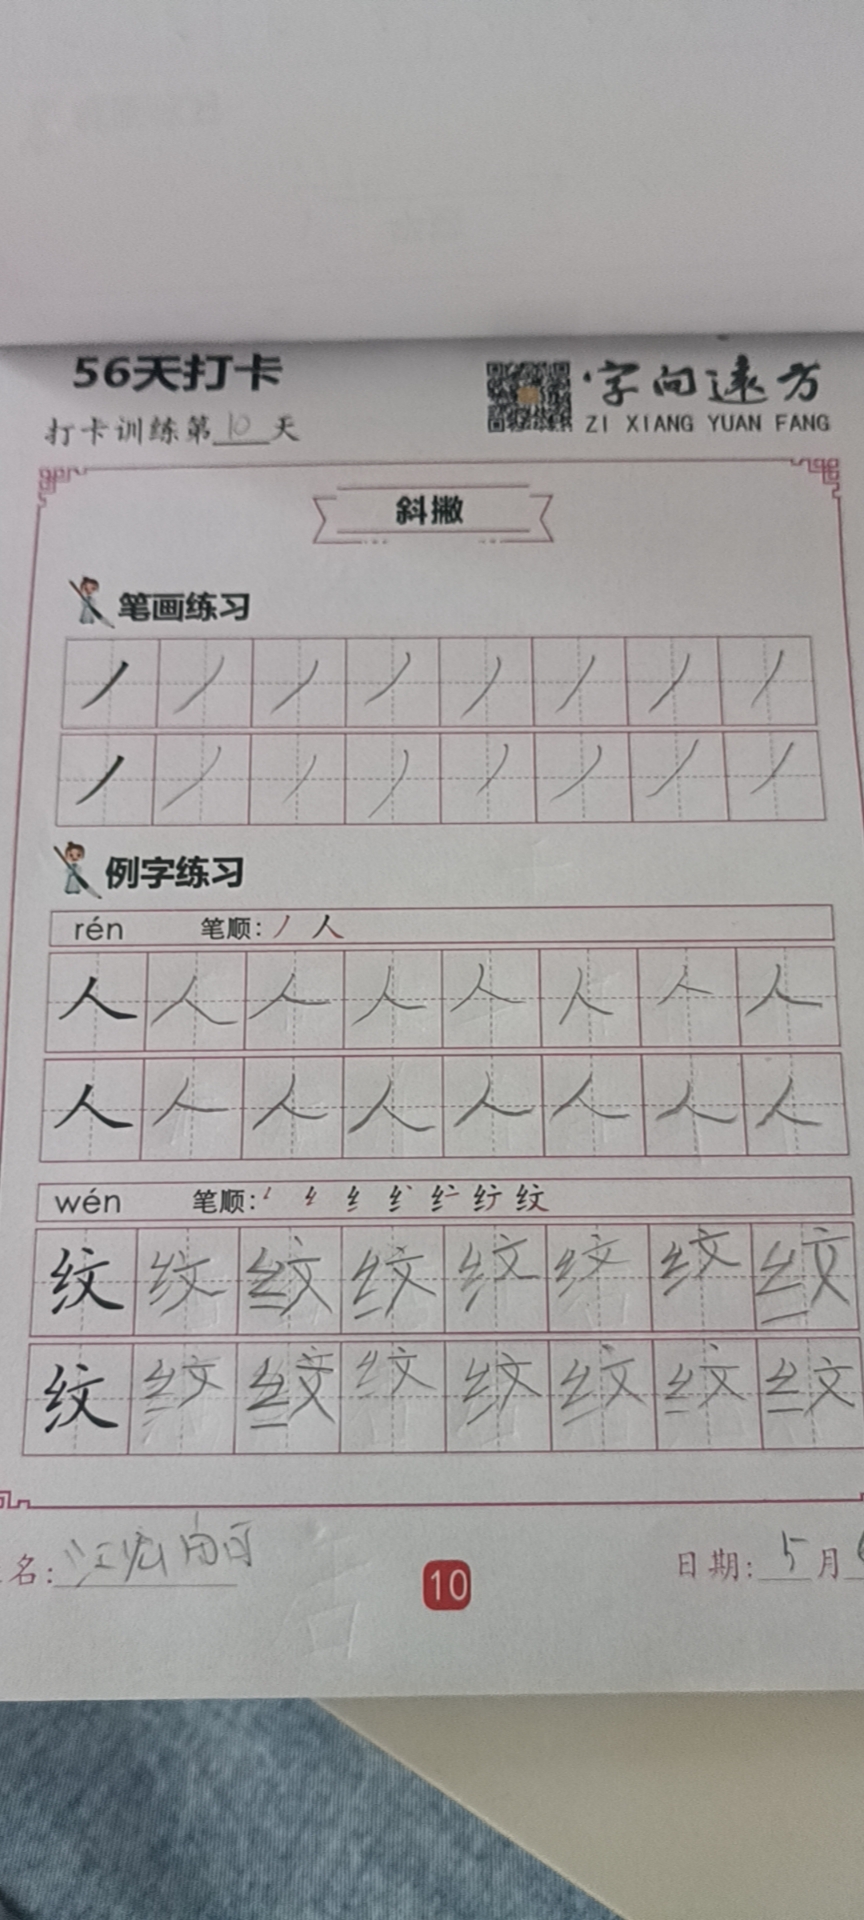 56天打卡
字向远方
打卡训练第10天
ZI XIANG YUAN FANG
斜撇
笔画练习
丿丿丿丿丿丿丿丿
丿丿丿丿丿丿丿丿
例字练习
rén 笔顺：丿 人
人人人人人人人人
人人人人人人人人
wén 笔顺：
纹纹纹纹纹纹纹纹
纹纹纹纹纹纹纹纹
名：江宏
日期：5月
10